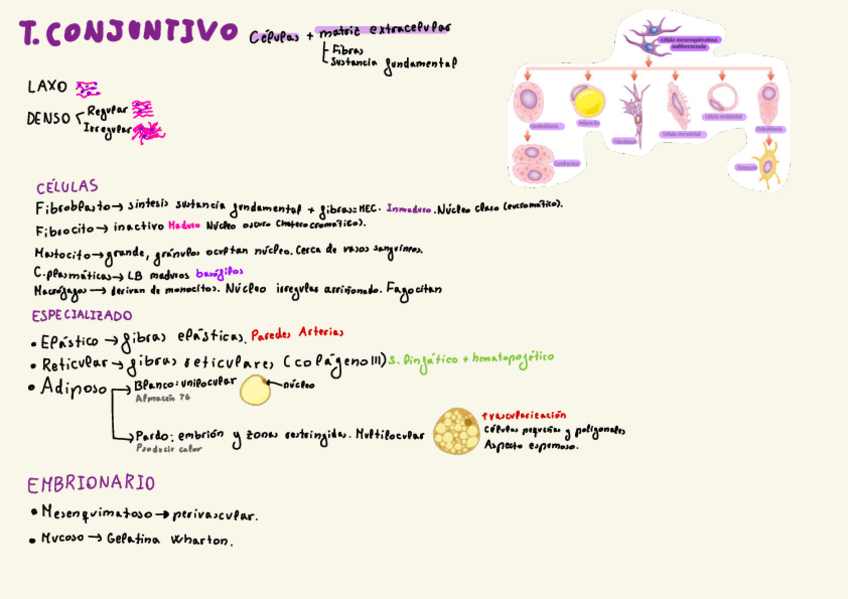 T. CONJUNTIVO Células + matriz extracelular
Fibras
Sustancia fundamental
LAXO
DENSO Regular
Irregular
Célula mesenquimatosa indiferenciada
Condroblasto
Adipocito
Fibroblasto
Célula mesotelial
Célula endotelial
Osteoblasto
Condrocitos
Osteocito
CÉLULAS
Fibroblasto → síntesis sustancia fundamental + fibras = MEC. Inmaduro. Núcleo claro (eucromático).
Fibrocito → inactivo Maduro Núcleo oscuro (heterocromático).
Mastocito → grande, gránulos ocultan núcleo. Cerca de vasos sanguíneos.
C. plasmáticas → LB maduros basófilos
Macrófagos → derivan de monocitos. Núcleo irregular arriñonado. Fagocitan
ESPECIALIZADO
• Elástico → fibras elásticas. Paredes Arterias
• Reticular → fibras reticulares (colágeno III) S. linfático + hematopoyético
• Adiposo Blanco: unilocular núcleo
Almacén TG
Pardo: embrión y zonas restringidas. Multilocular
Producir calor
↑ vascularización
Células pequeñas y poligonales
Aspecto espumoso.
EMBRIONARIO
• Mesenquimatoso → perivascular.
• Mucoso → Gelatina Wharton.